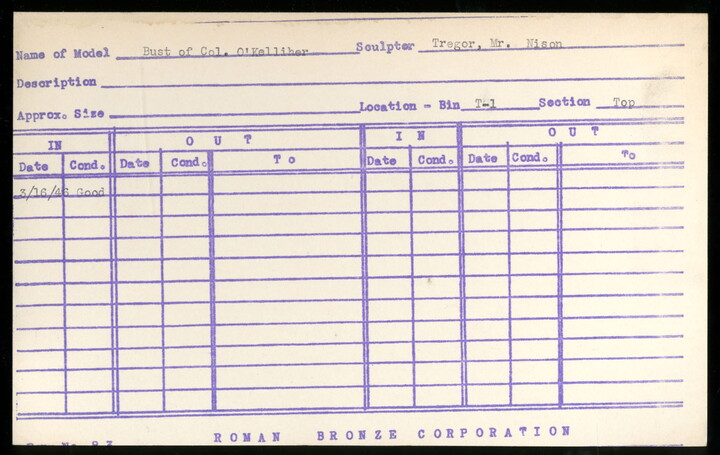 Name of Model Bust of Col. O'Kelliher Sculptor Tregor, Mr. Nison
Description
Approx. Size Location - Bin T-1 Section Top
IN OUT IN OUT
Date Cond. Date Cond. TO Date Cond. Date Cond. To
3/16/46 Good
ROMAN BRONZE CORPORATION